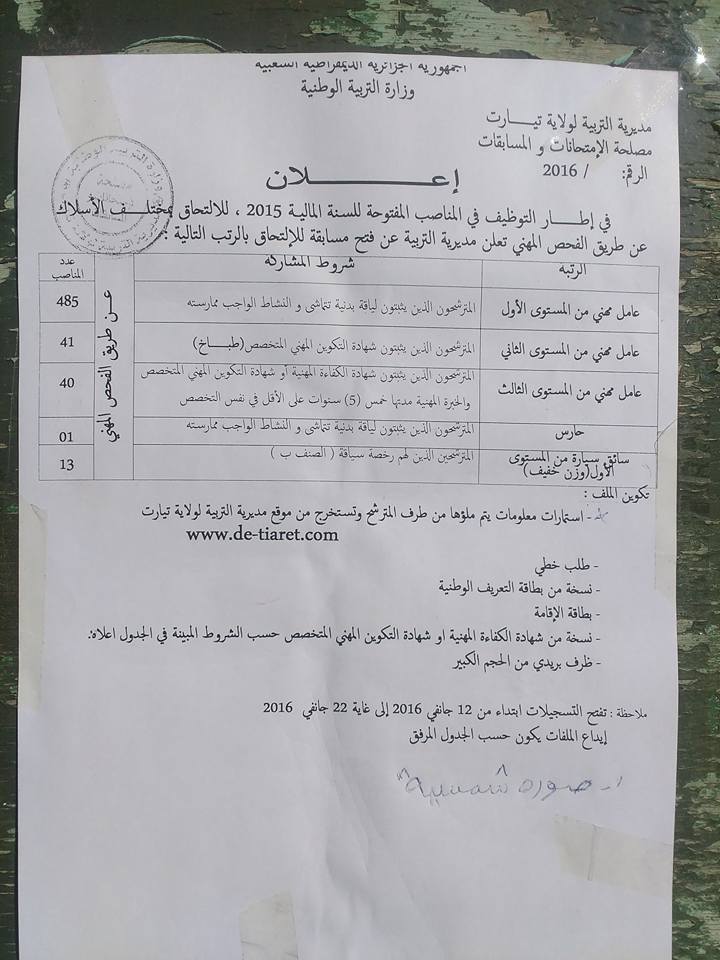 الجمهورية الجزائرية الديمقراطية الشعبية
وزارة التربية الوطنية
مديرية التربية لولاية تيـــارت
مصلحة الإمتحانات و المسابقات
الرقم: / 2016
إعـــــــلان
في إطـــار التوظيف في المناصب المفتوحة للسنة المالية 2015 ، للالتحاق بمختلـــف الأسلاك
عن طريق الفحص المهني تعلن مديرية التربية عن فتح مسابقة للإلتحاق بالرتب التالية :
الرتبه شروط المشاركه عدد المناصب
عـــن طريق الفحص المهني
عامل مهني من المستوى الأول المترشحون الذين يثبتون لياقة بدنية تتماشى و النشاط الواجب ممارسته 485
عامل مهني من المستوى الثاني المترشحون الذين يثبتون شهادة التكوين المهني المتخصص(طبـــاخ) 41
عامل مهني من المستوى الثالث المترشحون الذين يثبتون شهادة الكفاءة المهنية أو شهادة التكوين المهني المتخصص 40
والخبرة المهنية مدتها خمس (5) سنوات على الأقل في نفس التخصص
حارس المترشحون الذين يثبتون لياقة بدنية تتماشى و النشاط الواجب ممارسته 01
سائق سيارة من المستوى الأول(وزن خفيف) المترشحين الذين لهم رخصة سياقة ( الصنف ب ) 13
تكوين الملف :
- استمارات معلومات يتم ملؤها من طرف المترشح وتستخرج من موقع مديرية التربية لولاية تيارت
www.de-tiaret.com
- طلب خطي
- نسخة من بطاقة التعريف الوطنية
- بطاقة الإقامة
- نسخة من شهادة الكفاءة المهنية او شهادة التكوين المهني المتخصص حسب الشروط المبينة في الجدول اعلاه.
- ظرف بريدي من الحجم الكبير
ملاحظة : تفتح التسجيلات ابتداء من 12 جانفي 2016 إلى غاية 22 جانفي 2016
إيداع الملفات يكون حسب الجدول المرفق
- صورة شمسية